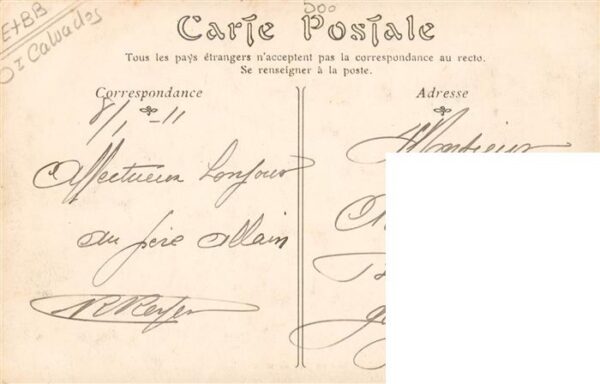 E+BB
Oz Calvados
500
Carte Postale
Tous les pays étrangers n'acceptent pas la correspondance au recto.
Se renseigner à la poste.
Correspondance
8/1-11
Affectueux bonjour
du frère Allain
Adresse
Monsieur